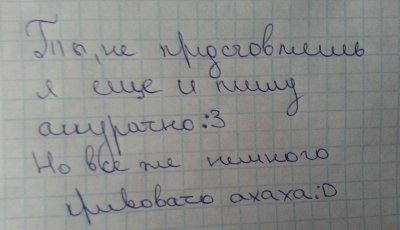 Ты, не пр​идстовляешь
я еще и пишу
акуратно:3
Но все же немного
кривовато ахаха:D